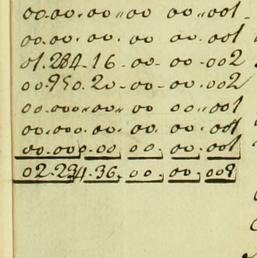 00.00.00,,00 00,,001
00.00.00.00 00.001
01.284.16-00-00-002
00.950.20-00-00.002
00.000.00.00 00,,001
00.000.00.00.00.001
00.000.00.00.00.001
02.234.36.00.00.009